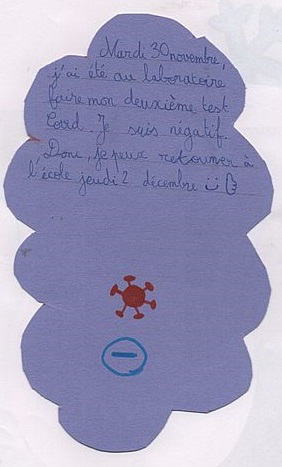 Mardi 30 novembre,
j'ai été au laboratoire
faire mon deuxième test
Covid. Je suis négatif.
Donc, je peux retourner à
l'école jeudi 2 décembre